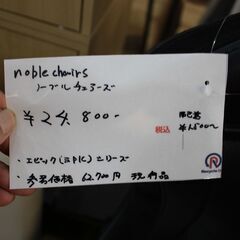 noblechairs
ノーブルチェアーズ
¥24,800-
税込
・エピック(EPIC)シリーズ
・参考価格 62,700円 現行品